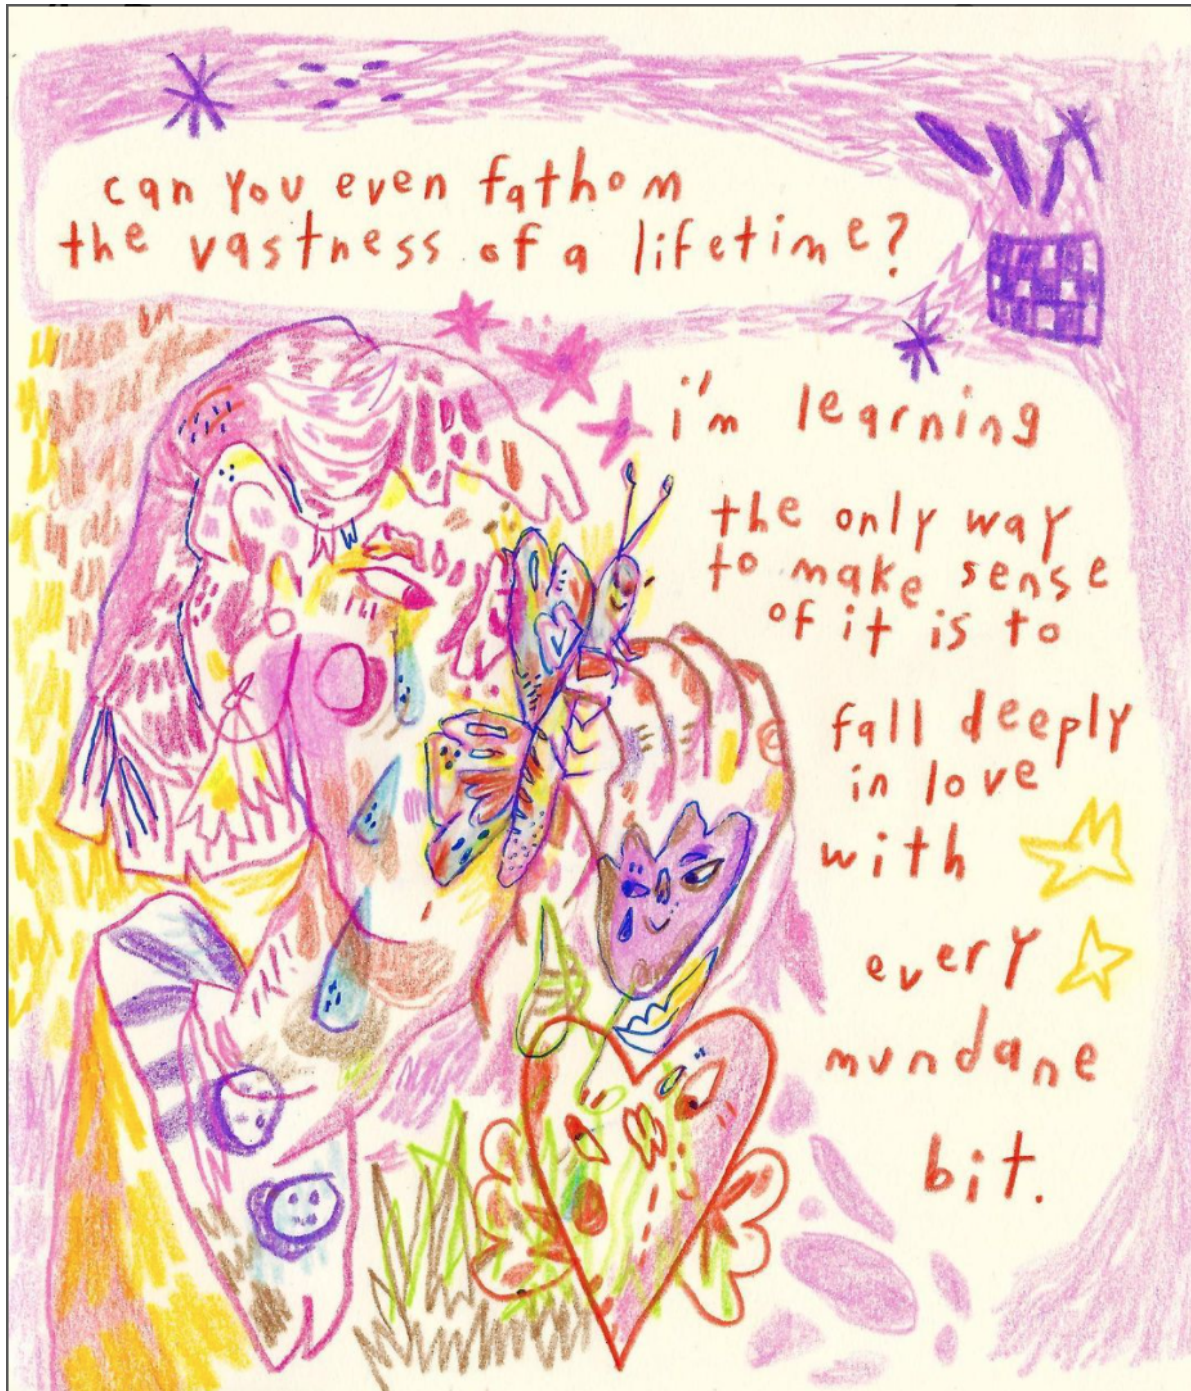 can you even fathom
the vastness of a lifetime?
i'm learning
the only way
to make sense
of it is to
fall deeply
in love
with
every
mundane
bit.